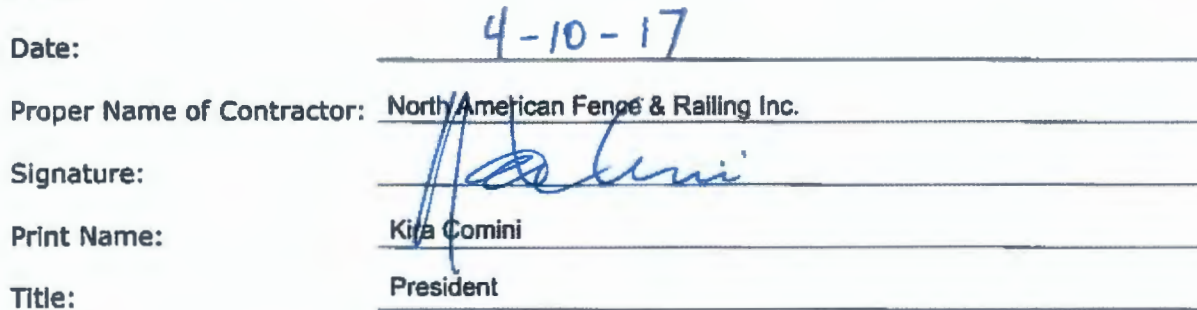 Date: 4-10-17
Proper Name of Contractor: North American Fence & Railing Inc.
Signature:
Print Name: Kira Comini
Title: President